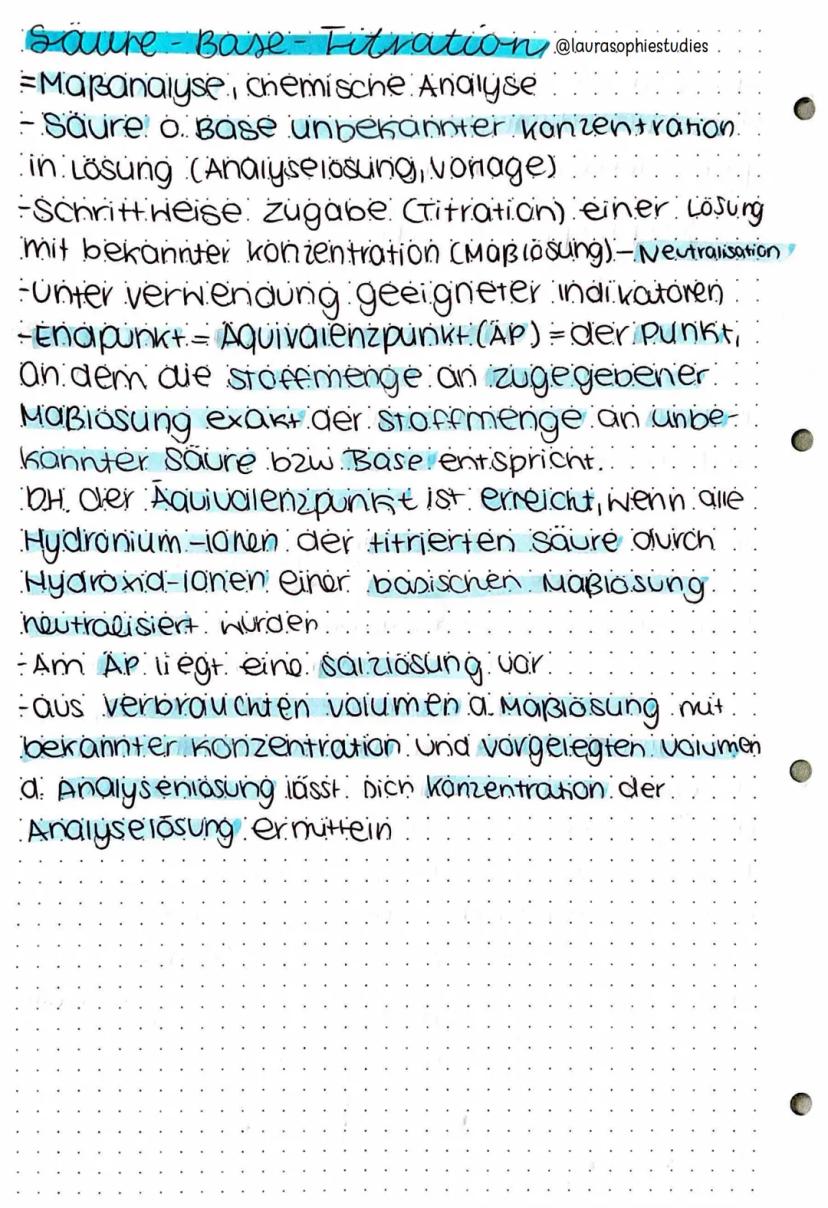 Säure-Base-Titration @laurasophiestudies
=Maßanalyse, chemische Analyse
- Säure o. Base unbekannter Konzentration
in Lösung (Analyselösung, Vorlage)
-Schrittweise Zugabe (Titration) einer Lösung
mit bekannter Konzentration (Maßlösung) - Neutralisation
-unter verwendung geeigneter Indikatoren
-Endpunkt = Äquivalenzpunkt (ÄP) = der Punkt,
an dem die Stoffmenge an zugegebener
Maßlösung exakt der Stoffmenge an unbe-
kannter Säure bzw Base entspricht.
DH. der Äquivalenzpunkt ist erreicht, wenn alle
Hydronium-Ionen der titrierten Säure durch
Hydroxid-Ionen einer basischen Maßlösung
neutralisiert wurden
-Am ÄP liegt eine Salzlösung vor
-aus verbrauchten volumen d. Maßlösung mit
bekannter Konzentration und vorgelegten Volumen
d. Analysenlösung lässt sich Konzentration der
Analyselösung ermitteln